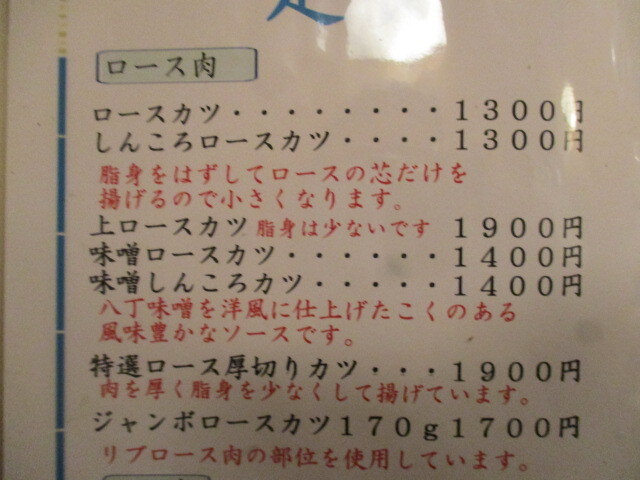 ロース肉
ロースカツ・・・・・・・・・1300円
しんころロースカツ・・・・1300円
脂身をはずしてロースの芯だけを
揚げるので小さくなります。
上ロースカツ 脂身は少ないです 1900円
味噌ロースカツ・・・・・・1400円
味噌しんころカツ・・・・・1400円
八丁味噌を洋風に仕上げたこくのある
風味豊かなソースです。
特選ロース厚切りカツ・・・1900円
肉を厚く脂身を少なくして揚げています。
ジャンボロースカツ170g1700円
リブロース肉の部位を使用しています。